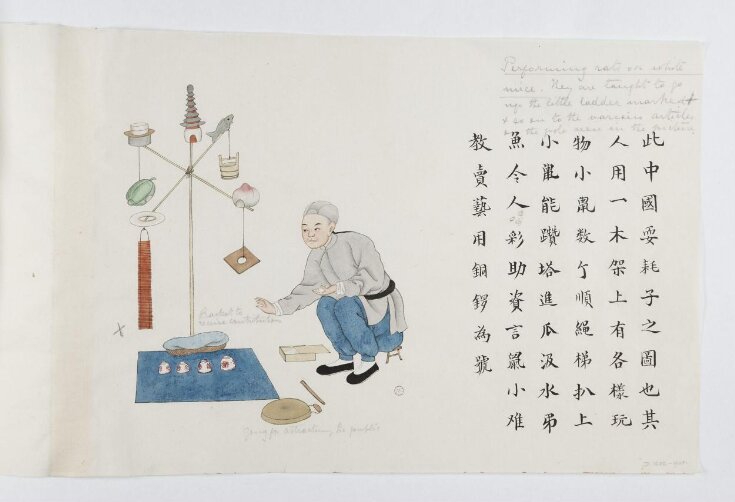 Performing rats or white
mice. They are taught to go
up the little ladder marked +
& so on to the various articles
on the pole seen in the picture
此中國耍耗子之圖也其
人用一木架上有各樣玩
物小鼠数个順繩梯扒上
小鼠能鑽塔進瓜汲水吊
魚令人彩助資言鼠小难
教賣藝用銅鑼為號
Basket to
receive contributions
x
Gong for attracting the public